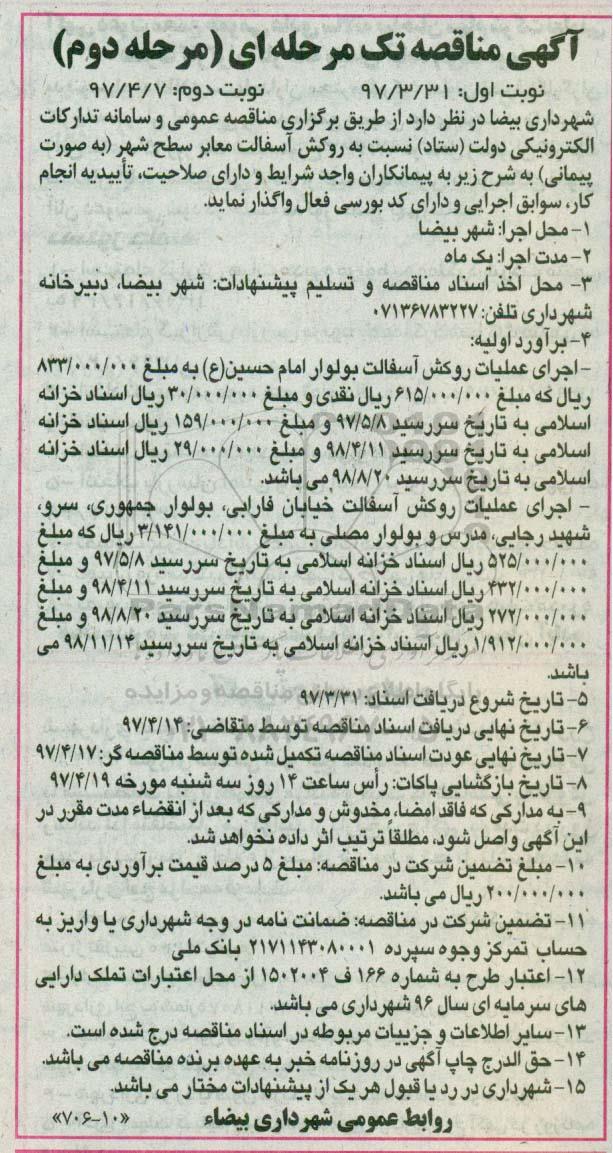 آگهی مناقصه تک مرحله ای (مرحله دوم)
نوبت اول: ۹۷/۳/۳۱ نوبت دوم: ۹۷/۴/۷
شهرداری بیضا در نظر دارد از طریق برگزاری مناقصه عمومی و سامانه تدارکات
الکترونیکی دولت (ستاد) نسبت به روکش آسفالت معابر سطح شهر (به صورت
پیمانی) به شرح زیر به پیمانکاران واجد شرایط و دارای صلاحیت، تأییدیه انجام
کار، سوابق اجرایی و دارای کد بورسی فعال واگذار نماید.
۱- محل اجرا: شهر بیضا
۲- مدت اجرا: یک ماه
۳- محل اخذ اسناد مناقصه و تسلیم پیشنهادات: شهر بیضا، دبیرخانه
شهرداری تلفن: ۰۷۱۳۶۷۸۳۲۲۷
۴- برآورد اولیه:
- اجرای عملیات روکش آسفالت بولوار امام حسین(ع) به مبلغ ۸۳۳/۰۰۰/۰۰۰
ریال که مبلغ ۶۱۵/۰۰۰/۰۰۰ ریال نقدی و مبلغ ۳۰/۰۰۰/۰۰۰ ریال اسناد خزانه
اسلامی به تاریخ سررسید ۹۷/۵/۸ و مبلغ ۱۵۹/۰۰۰/۰۰۰ ریال اسناد خزانه
اسلامی به تاریخ سررسید ۹۸/۴/۱۱ و مبلغ ۲۹/۰۰۰/۰۰۰ ریال اسناد خزانه
اسلامی به تاریخ سررسید ۹۸/۸/۲۰ می باشد.
- اجرای عملیات روکش آسفالت خیابان فارابی، بولوار جمهوری، سرو،
شهید رجایی، مدرس و بولوار مصلی به مبلغ ۳/۱۴۱/۰۰۰/۰۰۰ ریال که مبلغ
۵۲۵/۰۰۰/۰۰۰ ریال اسناد خزانه اسلامی به تاریخ سررسید ۹۷/۵/۸ و مبلغ
۴۳۲/۰۰۰/۰۰۰ ریال اسناد خزانه اسلامی به تاریخ سررسید ۹۸/۴/۱۱ و مبلغ
۲۷۲/۰۰۰/۰۰۰ ریال اسناد خزانه اسلامی به تاریخ سررسید ۹۸/۸/۲۰ و مبلغ
۱/۹۱۲/۰۰۰/۰۰۰ ریال اسناد خزانه اسلامی به تاریخ سررسید ۹۸/۱۱/۱۴ می
باشد.
۵- تاریخ شروع دریافت اسناد: ۹۷/۳/۳۱
۶- تاریخ نهایی دریافت اسناد مناقصه توسط متقاضی: ۹۷/۴/۱۴
۷- تاریخ نهایی عودت اسناد مناقصه تکمیل شده توسط مناقصه گر: ۹۷/۴/۱۷
۸- تاریخ بازگشایی پاکات: رأس ساعت ۱۴ روز سه شنبه مورخه ۹۷/۴/۱۹
۹- به مدارکی که فاقد امضا، مخدوش و مدارکی که بعد از انقضاء مدت مقرر در
این آگهی واصل شود، مطلقاً ترتیب اثر داده نخواهد شد.
۱۰- مبلغ تضمین شرکت در مناقصه: مبلغ ۵ درصد قیمت برآوردی به مبلغ
۲۰۰/۰۰۰/۰۰۰ ریال می باشد.
۱۱- تضمین شرکت در مناقصه: ضمانت نامه در وجه شهرداری یا واریز به
حساب تمرکز وجوه سپرده ۲۱۷۱۱۴۳۰۸۰۰۰۱ بانک ملی
۱۲- اعتبار طرح به شماره ۱۶۶ ف ۱۵۰۲۰۰۴ از محل اعتبارات تملک دارایی
های سرمایه ای سال ۹۶ شهرداری می باشد.
۱۳- سایر اطلاعات و جزییات مربوطه در اسناد مناقصه درج شده است.
۱۴- حق الدرج چاپ آگهی در روزنامه خبر به عهده برنده مناقصه می باشد.
۱۵- شهرداری در رد یا قبول هر یک از پیشنهادات مختار می باشد.
روابط عمومی شهرداری بیضاء «۷۰۶-۱۰»